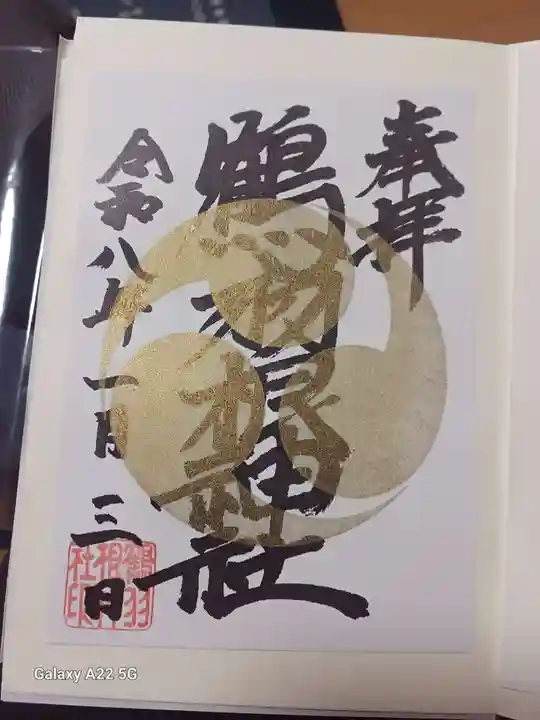 奉拝
鶴羽根神社
令和八年一月三日
鶴羽
根神
社印
Galaxy A22 5G